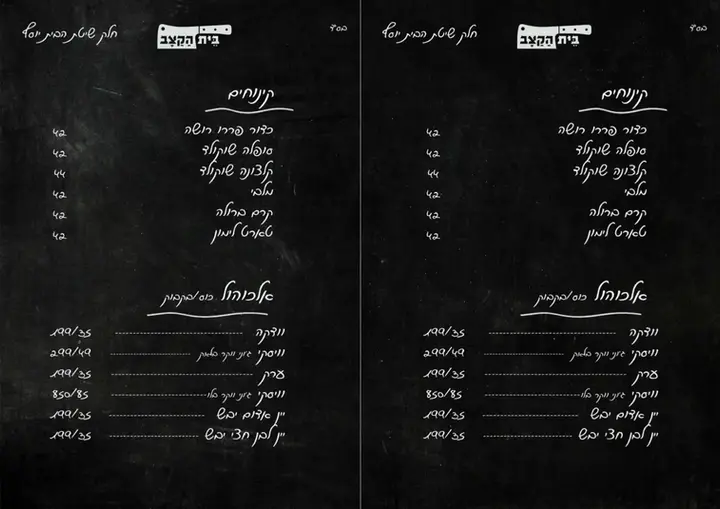 בס"ד
בֵּית הַקַצָב
חלק שיטת הבית יוסף
קינוחים
כדור פררו רושה 42
סופלה שוקולד 42
קלצונה שוקולד 44
מלבי 42
קרם ברולה 42
טארט לימון 42
אלכוהול כוס/בקבוק
וודקה 199/35
וויסקי ג'וני ווקר בלאק 299/49
ערק 199/35
וויסקי ג'וני ווקר בלו 850/85
יין אדום יבש 199/35
יין לבן חצי יבש 199/35
בס"ד
בֵּית הַקַצָב
חלק שיטת הבית יוסף
קינוחים
כדור פררו רושה 42
סופלה שוקולד 42
קלצונה שוקולד 44
מלבי 42
קרם ברולה 42
טארט לימון 42
אלכוהול כוס/בקבוק
וודקה 199/35
וויסקי ג'וני ווקר בלאק 299/49
ערק 199/35
וויסקי ג'וני ווקר בלו 850/85
יין אדום יבש 199/35
יין לבן חצי יבש 199/35